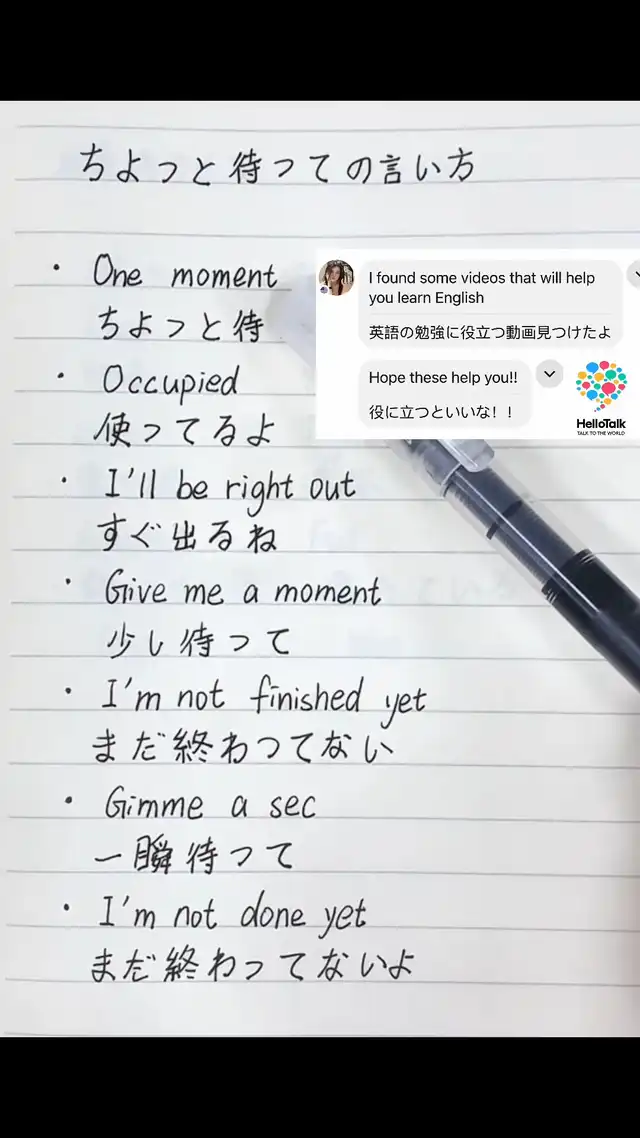 ちょっと待っての言い方
・ One moment
ちょっと待
・ Occupied
使ってるよ
・ I'll be right out
すぐ出るね
・ Give me a moment
少し待って
・ I'm not finished yet
まだ終わってない
・ Gimme a sec
一瞬待って
・ I'm not done yet
まだ終わってないよ
I found some videos that will help
you learn English
英語の勉強に役立つ動画見つけたよ
Hope these help you!!
役に立つといいな！！
HelloTalk
TALK TO THE WORLD